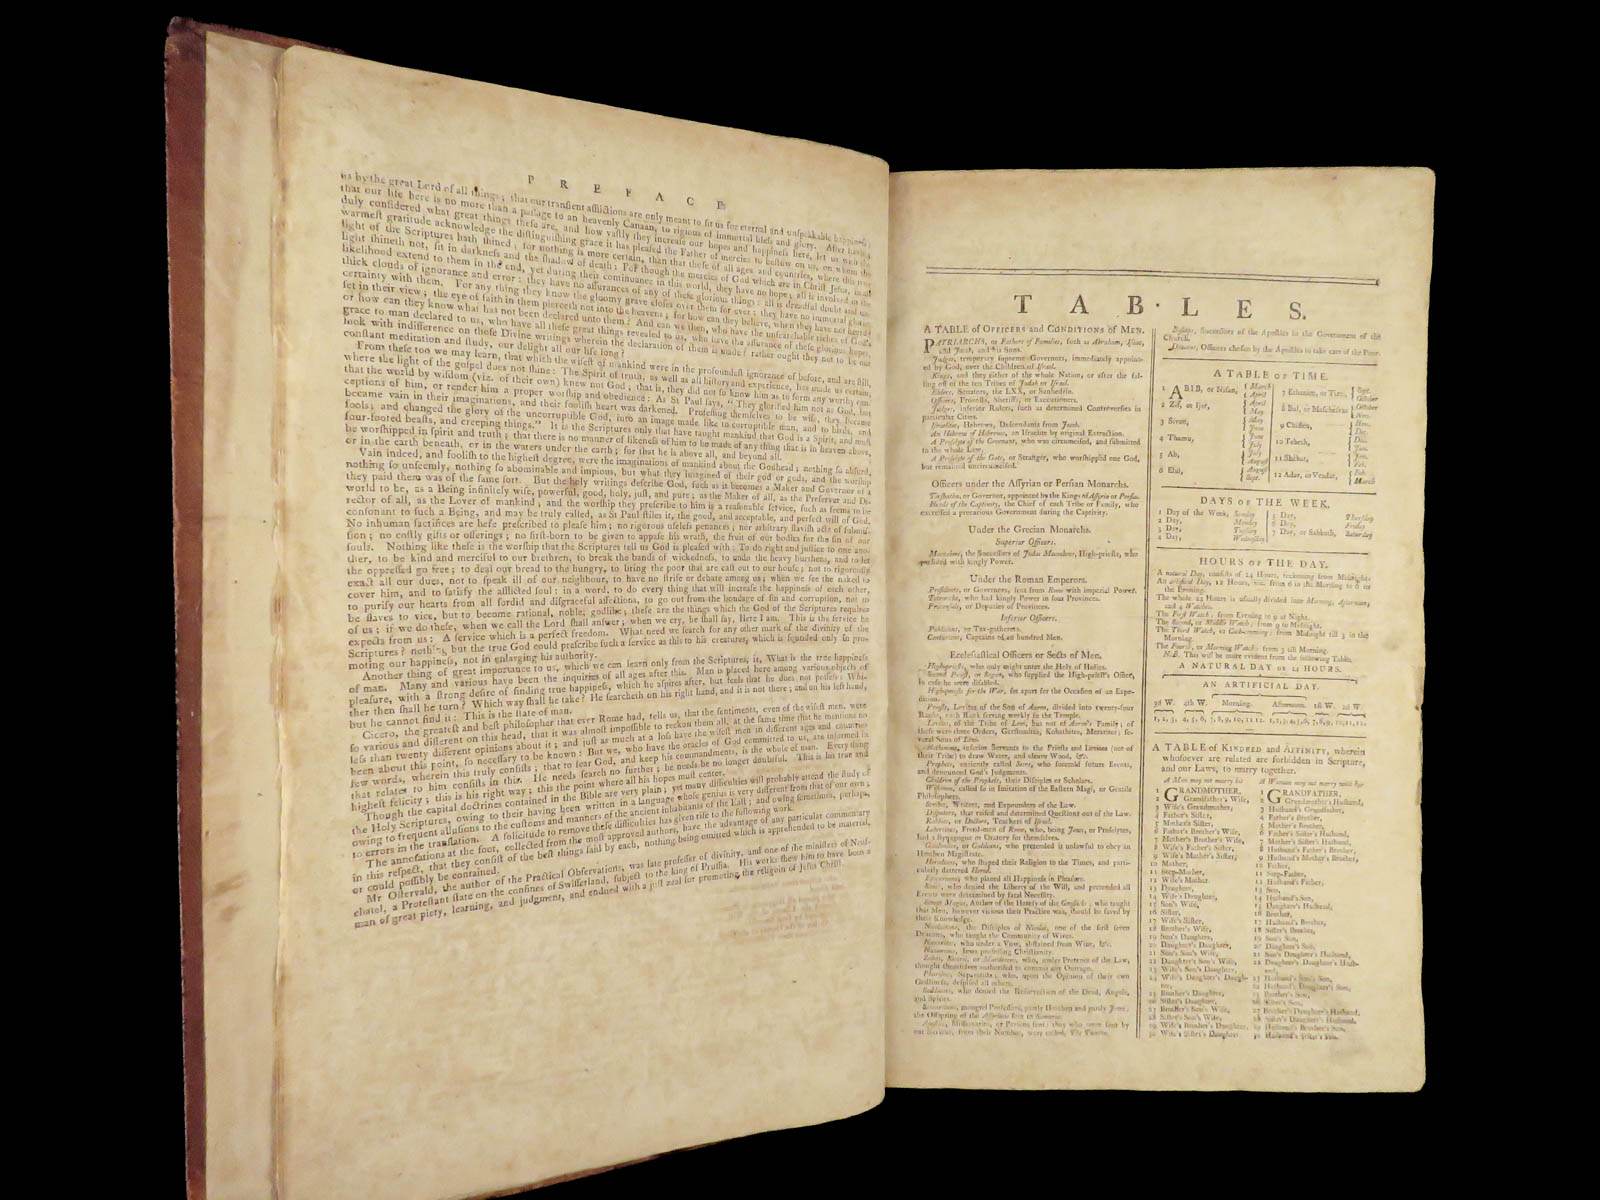 PREFACE
us by the great Lord of all things; that our transient afflictions are only meant to fit us for eternal and unspeakable happiness;
that our life here is no more than a passage to an heavenly Canaan, to rigious of immortal bless and glory. After having
duly considered what great things these are, and how vastly they increase our hopes and happiness here, let us with the
warmest gratitude acknowledge the distinguishing grace it has pleased the Father of mercies to bestow on us, on whom the
light of the Scriptures hath shined; for nothing is more certain, than that those of all ages and countries, where this true
light shineth not, sit in darkness and the shadow of death: For though the mercies of God which are in Christ Jesus, in all
likelihood extend to them in the end, yet during their continuance in this world, they have no hope; all is involved in the
thick clouds of ignorance and error: they have no assurances of any of these glorious things: all is dreadful doubt and un-
certainty with them. For any thing they know the gloomy grave closes over them for ever; they have no immortal glories
set in their view; the eye of faith in them pierceth not into the heavens; for how can they believe, when they have not heard?
or how can they know what has not been declared unto them? And can we then, who have the unsearchable riches of God's
grace to man declared to us, who have all these great things revealed to us, who have the assurance of these glorious hopes,
look with indifference on those Divine writings wherein the declaration of them is made? rather ought they not to be our
constant meditation and study, our delight all our life long?
From these too we may learn, that which the wisest of mankind were in the profoundest ignorance of before, and are still,
where the light of the gospel does not shine: The Spirit of truth, as well as all history and experience, has made us certain,
that the world by wisdom (viz. of their own) knew not God; that is, they did not so know him as to form any worthy con-
ceptions of him, or render him a proper worship and obedience: As St Paul says, "They glorified him not as God, but
became vain in their imaginations, and their foolish heart was darkened. Professing themselves to be wise, they became
fools; and changed the glory of the uncorruptible God, into an image made like to corruptible man, and to birds, and
four-footed beasts, and creeping things." It is the Scriptures only that have taught mankind that God is a Spirit, and must
be worshipped in spirit and truth; that there is no manner of likeness of him to be made of any thing that is in heaven above,
or in the earth beneath, or in the waters under the earth; for that he is above all, and beyond all.
Vain indeed, and foolish to the highest degree, were the imaginations of mankind about the Godhead; nothing so absurd,
nothing so unseemly, nothing so abominable and impious, but what they imagined of their god or gods, and the worship
they paid them was of the same sort. But the holy writings describe God, such as it becomes a Maker and Governor of a
world to be, as a Being infinitely wise, powerful, good, holy, just, and pure; as the Maker of all, as the Preserver and Di-
rector of all, as the Lover of mankind; and the worship they prescribe to him is a reasonable service, such as seems to be
consonant to such a Being, and may be truly called, as St Paul stiles it, the good, and acceptable, and perfect will of God.
No inhuman sacrifices are here prescribed to please him; no rigorous useless penances; nor arbitrary slavish acts of submis-
sion; no costly gifts or offerings; no first-born to be given to appease his wrath, the fruit of our bodies for the sin of our
souls. Nothing like these is the worship that the Scriptures tell us God is pleased with: To do right and justice to one ano-
ther, to be kind and merciful to our brethren, to break the bands of wickedness, to undo the heavy burthens, and to let
the oppressed go free; to deal our bread to the hungry, to bring the poor that are cast out to our house; not to rigorously
exact all our dues, not to speak ill of our neighbour, to have no strife or debate among us; when we see the naked to
cover him, and to satisfy the afflicted soul: in a word, to do every thing that will increase the happiness of each other,
to purify our hearts from all sordid and disgraceful affections, to go out from the bondage of sin and corruption, not to
be slaves to vice, but to become rational, noble, godlike; these are the things which the God of the Scriptures requires
of us: if we do these, when we call the Lord shall answer; when we cry, he shall say, Here I am. This is the service he
expects from us: A service which is a perfect freedom. What need we search for any other mark of the divinity of the
Scriptures? nothing but the true God could prescribe such a service as this to his creatures, which is founded only in pro-
moting our happiness, not in enlarging his authority.
Another thing of great importance to us, which we can learn only from the Scriptures, is, What is the true happiness
of man. Many and various have been the inquiries of all ages after this. Man is placed here among various objects of
pleasure, with a strong desire of finding true happiness, which he aspires after, but feels that he does not possess: Whi-
ther then shall he turn? Which way shall he take? He searcheth on his right hand, and it is not there; and on his left hand,
but he cannot find it: This is the state of man.
Cicero, the greatest and best philosopher that ever Rome had, tells us, that the sentiments, even of the wisest men, were
so various and different on this head, that it was almost impossible to reckon them all; at the same time that he mentions no
less than twenty different opinions about it; and just as much at a loss have the wisest men in different ages and countries
been about this point, so necessary to be known: But we, who have the oracles of God committed to us, are informed in
few words, wherein this truly consists; that to fear God, and keep his commandments, is the whole of man. Every thing
that relates to him consists in this. He needs search no further; he needs be no longer doubtful. This is his true and
highest felicity; this is his right way; this the point where all his hopes must center.
Though the capital doctrines contained in the Bible are very plain; yet many difficulties will probably attend the study of
the Holy Scriptures, owing to their having been written in a language whose genius is very different from that of our own;
to frequent allusions to the customs and manners of the ancient inhabitants of the East; and owing sometimes, perhaps,
to errors in the translation. A solicitude to remove these difficulties has given rise to the following work.
The annotations at the foot, collected from the most approved authors, have the advantage of any particular commentary
in this respect, that they consist of the best things said by each, nothing being omitted which is apprehended to be material,
or could possibly be contained.
Mr Ostervald, the author of the Practical Observations, was late professor of divinity, and one of the ministers of Neuf-
chatel, a Protestant state on the confines of Swisserland, subject to the king of Prussia. His works shew him to have been a
man of great piety, learning, and judgment, and endued with a just zeal for promoting the religion of Jesus Christ.
TABLES.
A TABLE of OFFICERS and CONDITIONS of MEN.
PATRIARCHS, or Fathers of Families, such as Abraham, Isaac,
and Jacob, and his Sons.
Judges, temporary supreme Governors, immediately appoint-
ed by God, over the Children of Israel.
Kings, and they either of the whole Nation, or after the fal-
ling off of the ten Tribes of Judah or Israel.
Elders, Senators, the LXX, or Sanhedrim.
Officers, Provosts, Sheriffs, or Executioners.
Judges, inferior Rulers, such as determined Controversies in
particular Cities.
Israelites, Hebrews, Descendants from Jacob.
An Hebrew of Hebrews, an Israelite by original Extraction.
A Proselyte of the Covenant, who was circumcised, and submitted
to the whole Law.
A Proselyte of the Gate, or Stranger, who worshipped one God,
but remained uncircumcised.
Officers under the Assyrian or Persian Monarchs.
Tirshatha, or Governor, appointed by the Kings of Assyria or Persia.
Heads of the Captivity, the Chief of each Tribe or Family, who
exercised a precarious Government during the Captivity.
Under the Grecian Monarchs.
Superior Officers.
Maccabees, the Successors of Judas Maccabeus, High-priests, who
presided with kingly Power.
Under the Roman Emperors.
Presidents, or Governors, sent from Rome with imperial Power.
Tetrarchs, who had kingly Power in four Provinces.
Proconsuls, or Deputies of Provinces.
Inferior Officers.
Publicans, or Tax-gatherers.
Centurions, Captains of an hundred Men.
Ecclesiastical Officers or Sects of Men.
High-priests, who only might enter the Holy of Holies.
Second Priest, or Sagan, who supplied the High-priest's Office,
in case he were disabled.
High-priests for the War, set apart for the Occasion of an Expe-
dition.
Priests, Levites of the Son of Aaron, divided into twenty-four
Ranks, each Rank serving weekly in the Temple.
Levites, of the Tribe of Levi, but not of Aaron's Family; of
these were three Orders, Gershonites, Kohathites, Merarites; se-
veral Sons of Levi.
Nethinims, inferior Servants to the Priests and Levites (not of
their Tribe) to draw Water, and cleave Wood, &c.
Prophets, anciently called Seers, who foretold future Events,
and denounced God's Judgments.
Children of the Prophets, their Disciples or Scholars.
Wisemen, called so in Imitation of the Eastern Magi, or Gentile
Philosophers.
Scribes, Writers, and Expounders of the Law.
Disputers, that raised and determined Questions out of the Law.
Rabbies, or Doctors, Teachers of Israel.
Libertines, Freed-men of Rome, who, being Jews, or Proselytes,
had a Synagogue or Oratory for themselves.
Gaulonites, or Galileans, who pretended it unlawful to obey an
Heathen Magistrate.
Herodians, who shaped their Religion to the Times, and parti-
cularly flattered Herod.
Epicureans, who placed all Happiness in Pleasure.
Stoics, who denied the Liberty of the Will, and pretended all
Events were determined by fatal Necessity.
Simon Magus, Author of the Heresy of the Gnostics; who taught
that Men, however vicious their Practice was, should be saved by
their Knowledge.
Nicolaitans, the Disciples of Nicolas, one of the first seven
Deacons, who taught the Community of Wives.
Nazarites, who under a Vow, abstained from Wine, &c.
Nazarenes, Jews professing Christianity.
Zelots, Sicarii, or Murderers, who, under Pretence of the Law,
thought themselves authorised to commit any Outrage.
Pharisees, Separatists, who, upon the Opinion of their own
Godliness, despised all others.
Sadducees, who denied the Resurrection of the Dead, Angels,
and Spirits.
Samaritans, mongrel Professors, partly Heathen and partly Jews;
the Offspring of the Assyrians sent to Samaria.
Apostles, Missionaries, or Persons sent; they who were sent by
our Saviour, from their Number, were called, The Twelve.
Bishops, Successors of the Apostles in the Government of the
Church.
Deacons, Officers chosen by the Apostles to take care of the Poor.
A TABLE OF TIME.
1 ABIB, or Nisan, March April
2 Zif, or Ijar, April May
3 Sivan, May June
4 Thamu, June July
5 Ab, July August
6 Elul, August Sept.
7 Ethanim, or Tizri, Sept. October
8 Bul, or Maschesvan October Nov.
9 Chisleu, Nov. Dec.
10 Tebeth, Dec. Jan.
11 Shebat, Jan. Feb.
12 Adar, or Veadar, Feb. March
DAYS OF THE WEEK.
1 Day of the Week, Sunday
2 Day, Monday
3 Day, Tuesday
4 Day, Wednesday
5 Day, Thursday
6 Day, Friday
7 Day, or Sabbath, Saturday
HOURS OF THE DAY.
A natural Day, consists of 24 Hours, reckoning from Midnight.
An artificial Day, 12 Hours, viz. from 6 in the Morning to 6 in
the Evening.
The whole 24 Hours is usually divided into Morning, Afternoon,
and 4 Watches.
The First Watch; from Evening to 9 at Night.
The Second, or Middle Watch; from 9 to Midnight.
The Third Watch, or Cock-crowing; from Midnight till 3 in the
Morning.
The Fourth, or Morning Watch; from 3 till Morning.
Note. This will be more evident from the following Table.
A NATURAL DAY OF 24 HOURS.
AN ARTIFICIAL DAY.
3d W. 4th W. Morning. Afternoon. 1st W. 2d W.
1, 2, 3, 4, 5, 6, 7, 8, 9, 10, 11, 12. 1, 2, 3, 4, 5, 6, 7, 8, 9, 10, 11, 12.
A TABLE of KINDRED and AFFINITY, wherein
whosoever are related are forbidden in Scripture,
and our Laws, to marry together.
A Man may not marry his
1 GRANDMOTHER,
2 Grandfather's Wife,
3 Wife's Grandmother,
4 Father's Sister,
5 Mother's Sister,
6 Father's Brother's Wife,
7 Mother's Brother's Wife,
8 Wife's Father's Sister,
9 Wife's Mother's Sister,
10 Mother,
11 Step-Mother,
12 Wife's Mother
13 Daughter,
14 Wife's Daughter,
15 Son's Wife,
16 Sister,
17 Wife's Sister,
18 Brother's Wife,
19 Son's Daughter,
20 Daughter's Daughter,
21 Son's Son's Wife,
22 Daughter's Son's Wife,
23 Wife's Son's Daughter,
24 Wife's Daughter's Daugh-
ter,
25 Brother's Daughter,
26 Sister's Daughter,
27 Brother's Son's Wife,
28 Sister's Son's Wife,
29 Wife's Brother's Daughter,
30 Wife's Sister's Daughter.
A Woman may not marry with her
1 GRANDFATHER,
2 Grandmother's Husband,
3 Husband's Grandfather,
4 Father's Brother,
5 Mother's Brother,
6 Father's Sister's Husband,
7 Mother's Sister's Husband,
8 Husband's Father's Brother,
9 Husband's Mother's Brother,
10 Father,
11 Step-Father,
12 Husband's Father,
13 Son,
14 Husband's Son,
15 Daughter's Husband,
16 Brother,
17 Husband's Brother,
18 Sister's Husband,
19 Son's Son,
20 Daughter's Son,
21 Son's Daughter's Husband,
22 Daughter's Daughter's Husb-
and,
23 Husband's Son's Son,
24 Husband's Daughter's Son,
25 Brother's Son,
26 Sister's Son,
27 Brother's Daughter's Husband,
28 Sister's Daughter's Husband,
29 Husband's Brother's Son,
30 Husband's Sister's Son.